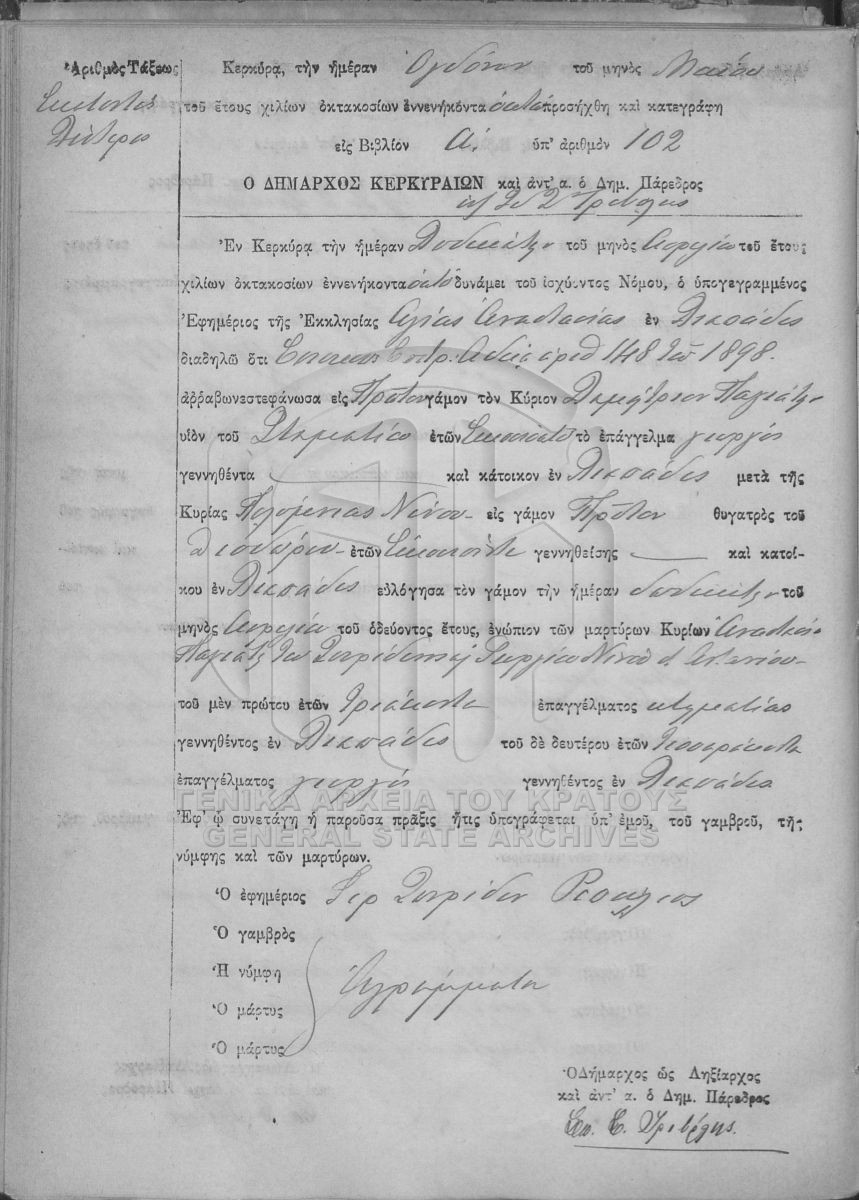 Ἀριθμὸς Τάξεως
Ἑκατοστὸς
Δεύτερος
Κερκύρᾳ, τὴν ἡμέραν Ὀγδόην τοῦ μηνὸς Μαΐου
τοῦ ἔτους χιλίων ὀκτακοσίων ἐννενήκοντα ὀκτὼ προσήχθη καὶ κατεγράφη
εἰς Βιβλίον Α. ὑπ' ἀριθμὸν 102
Ο ΔΗΜΑΡΧΟΣ ΚΕΡΚΥΡΑΙΩΝ καὶ ἀντ' α. ὁ Δημ. Πάρεδρος
Τριβόλης
Ἐν Κερκύρᾳ τὴν ἡμέραν Δωδεκάτην τοῦ μηνὸς Ἀπριλίου τοῦ ἔτους
χιλίων ὀκτακοσίων ἐννενήκοντα ὀκτὼ δυνάμει τοῦ ἰσχύοντος Νόμου, ὁ ὑπογεγραμμένος
Ἐφημέριος τῆς Ἐκκλησίας Ἁγίας Ἀναστασίας ἐν Λιαπάδες
διαδηλῶ ὅτι ἀδείᾳ ἀριθ 148 τοῦ 1898.
ἀρραβωνεστεφάνωσα εἰς Πρῶτον γάμον τὸν Κύριον Δημήτριον
υἱὸν τοῦ Σταματίου ἐτῶν Εἰκοσιοκτὼ τὸ ἐπάγγελμα γεωργὸς
γεννηθέντα καὶ κάτοικον ἐν Λιαπάδες μετὰ τῆς
Κυρίας Πολυμένιας Νίνου εἰς γάμον Πρῶτον θυγατρὸς τοῦ
Θεοδώρου ἐτῶν Εἰκοσιπέντε γεννηθείσης καὶ κατοί-
κου ἐν Λιαπάδες εὐλόγησα τὸν γάμον τὴν ἡμέραν δωδεκάτην τοῦ
μηνὸς Ἀπριλίου τοῦ ὁδεύοντος ἔτους, ἐνώπιον τῶν μαρτύρων Κυρίων
τοῦ Σπυρίδωνος Γεωργίου Νίνου Ἀντωνίου
τοῦ μὲν πρώτου ἐτῶν τριάκοντα ἐπαγγέλματος κτηματίας
γεννηθέντος ἐν Λιαπάδες τοῦ δὲ δευτέρου ἐτῶν τεσσαράκοντα
ἐπαγγέλματος γεωργὸς γεννηθέντος ἐν Λιαπάδες
ΓΕΝΙΚΑ ΑΡΧΕΙΑ ΤΟΥ ΚΡΑΤΟΥΣ
Ἐφ' ᾧ συνετάγη ἡ παροῦσα πρᾶξις ἥτις ὑπογράφεται ὑπ' ἐμοῦ, τοῦ γαμβροῦ, τῆς
GENERAL STATE ARCHIVES
νύμφης καὶ τῶν μαρτύρων.
Ὁ ἐφημέριος Ἱερ Σπυρίδων
Ὁ γαμβρὸς
Ἡ νύμφη Ἀγράμματοι
Ὁ μάρτυς
Ὁ μάρτυς
Ὁ Δήμαρχος ὡς Ληξίαρχος
καὶ ἀντ' α. ὁ Δημ. Πάρεδρος
Σπ. Ε. Τριβόλης.